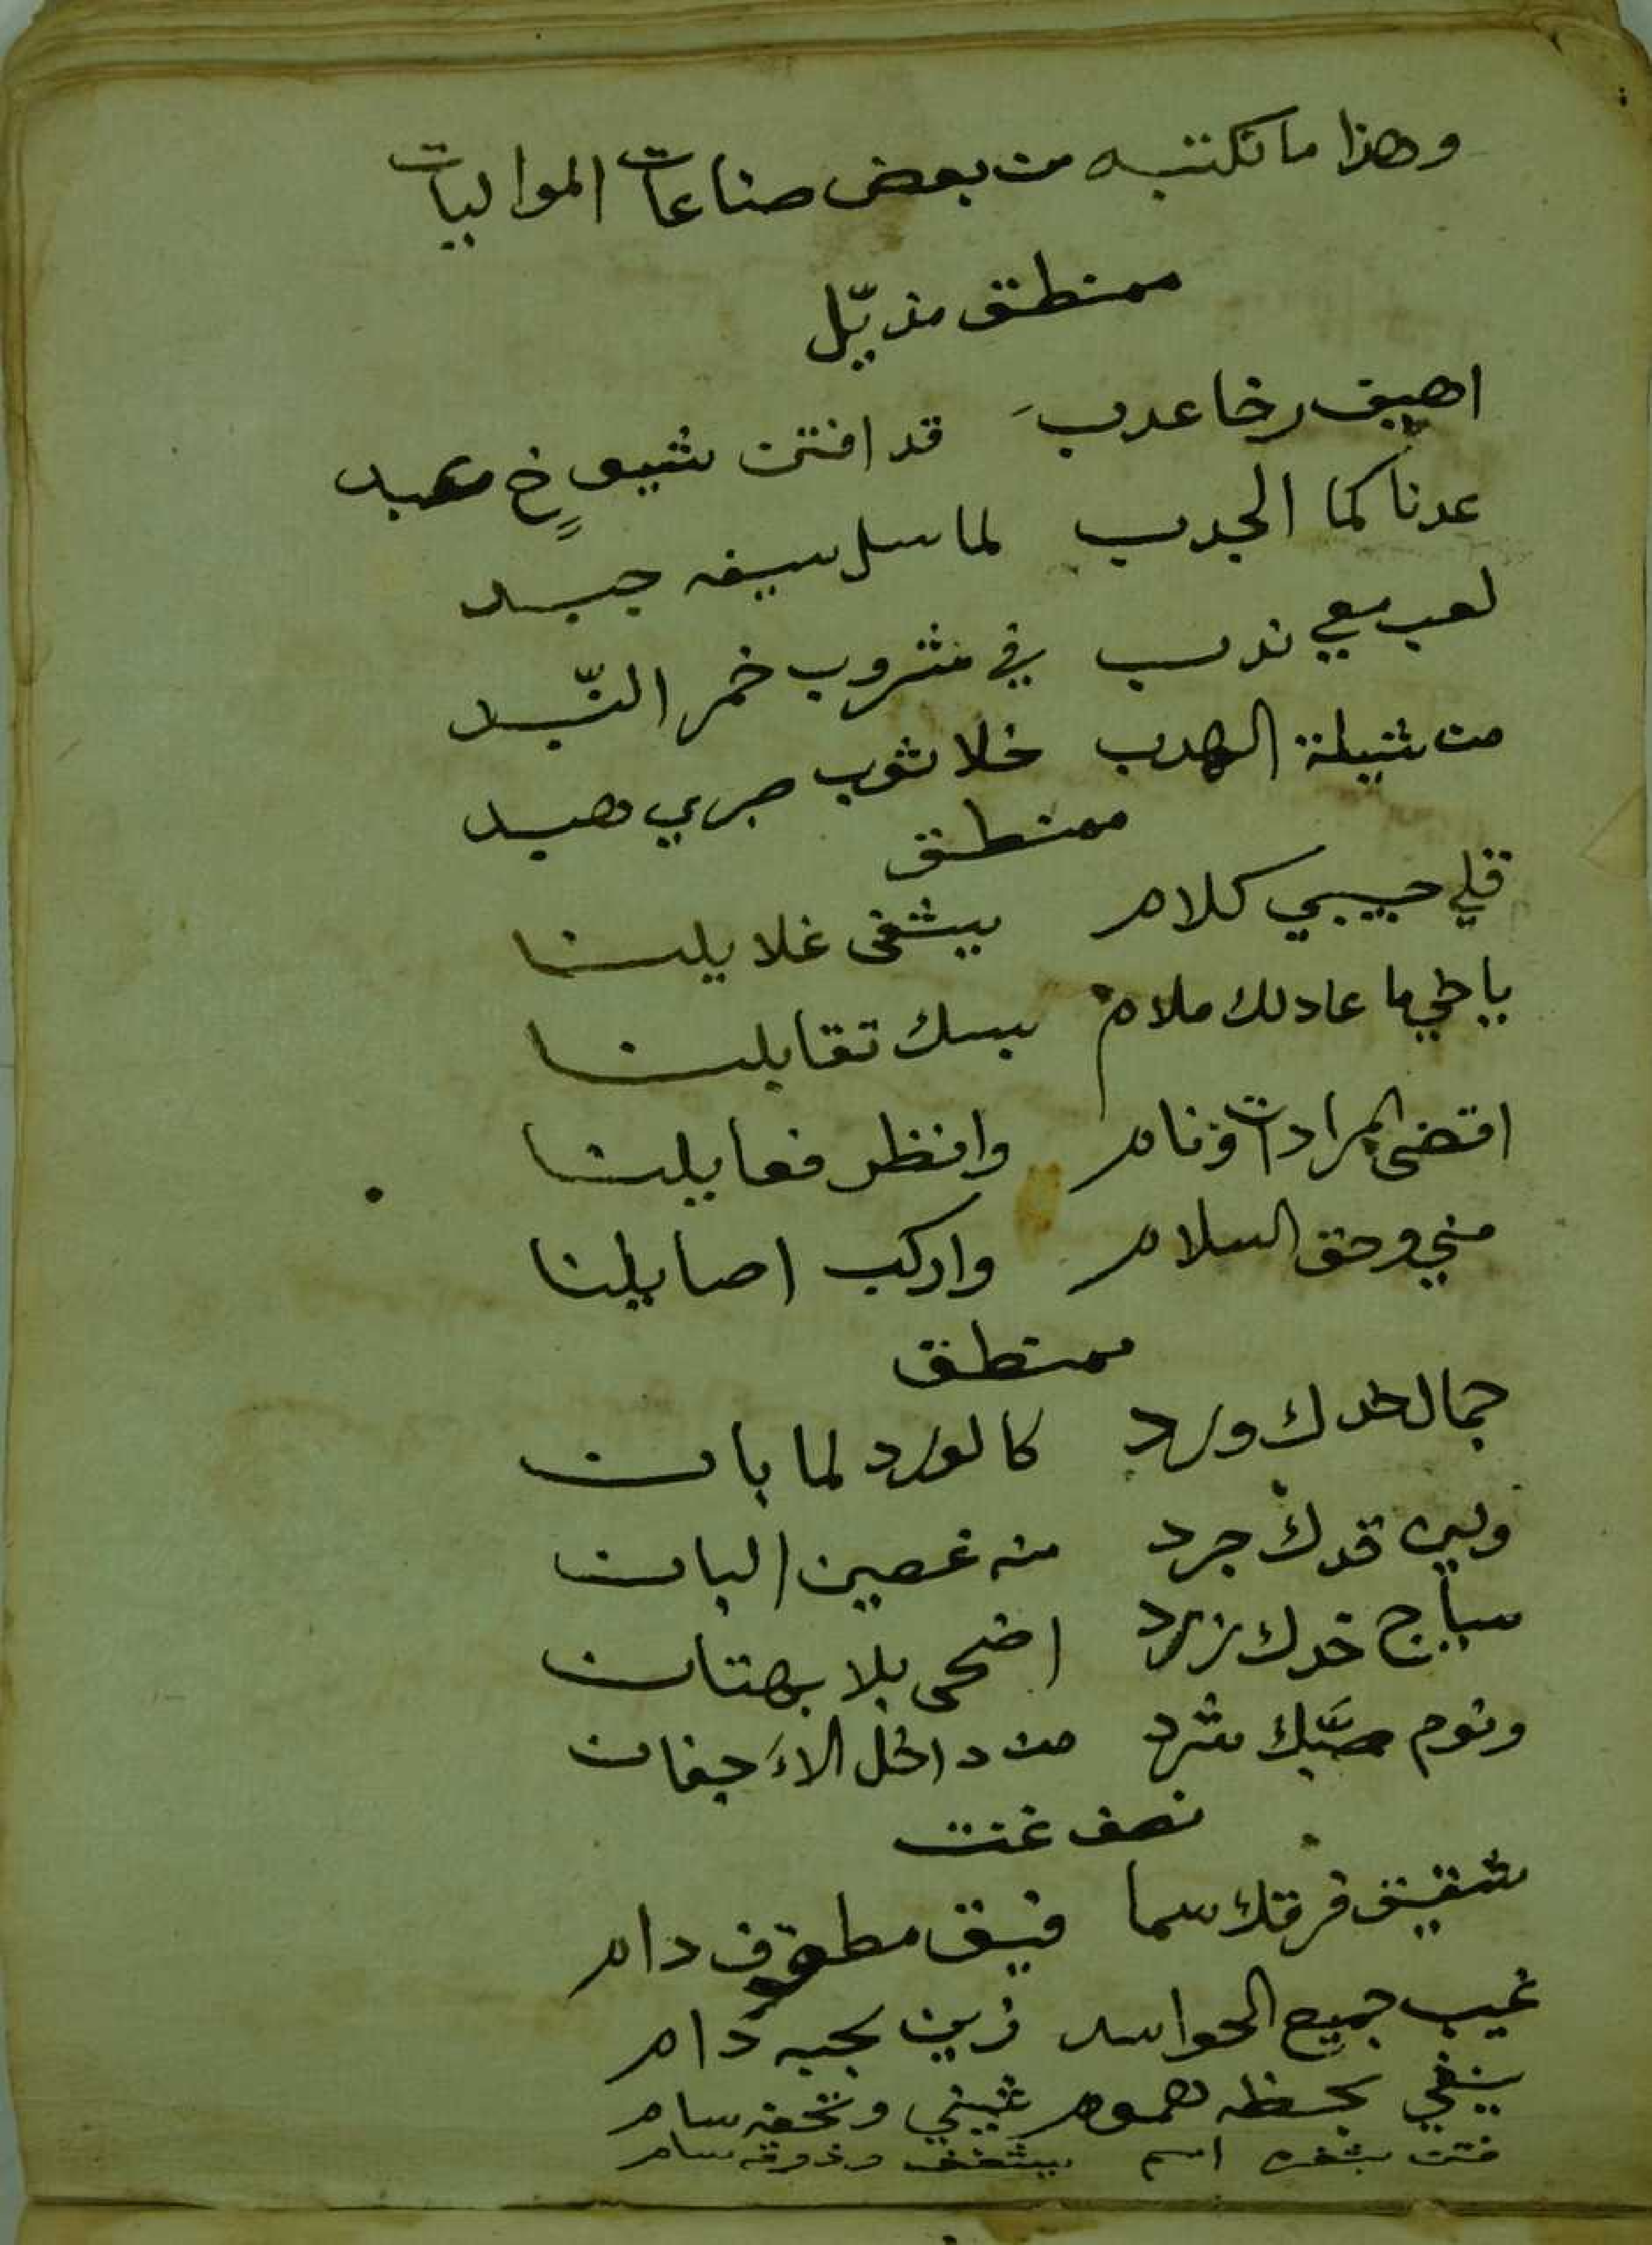 وهذا ما نكتبه من بعض صناعات المواليات
ممنطق مذيّل
اهيف رخا عدب قد افتن شيوخ معبد
عدنا كما الجدب لما سل سيفه جبد
لعب معي ندب في مشروب خمر النّبد
من شيلة الهدب خلا ثوب صبري هبد
ممنطق
قلي حبيبي كلام بيشفى غلايلنا
ياطي ما عاد لك ملام بسك تقابلنا
اقضى المرادات ونام وانظر فعايلنا
مني وحق السلام واركب اصايلنا
ممنطق
جمال خدك ورد كالورد لما بان
ولين قدك جرد منه غصين البان
سياج خدك زرد اضحى بلا بهتان
ونوم صبّك شرد من داخل الأجفان
نصف غنت
شقيق فرقك سما فيق دام
غيب جميع الحواسد زين بجبه دام
ينفي بحظه هموم غيبني ونحفه سام
فتن بثغره اسم بيشفف وذوقه سام